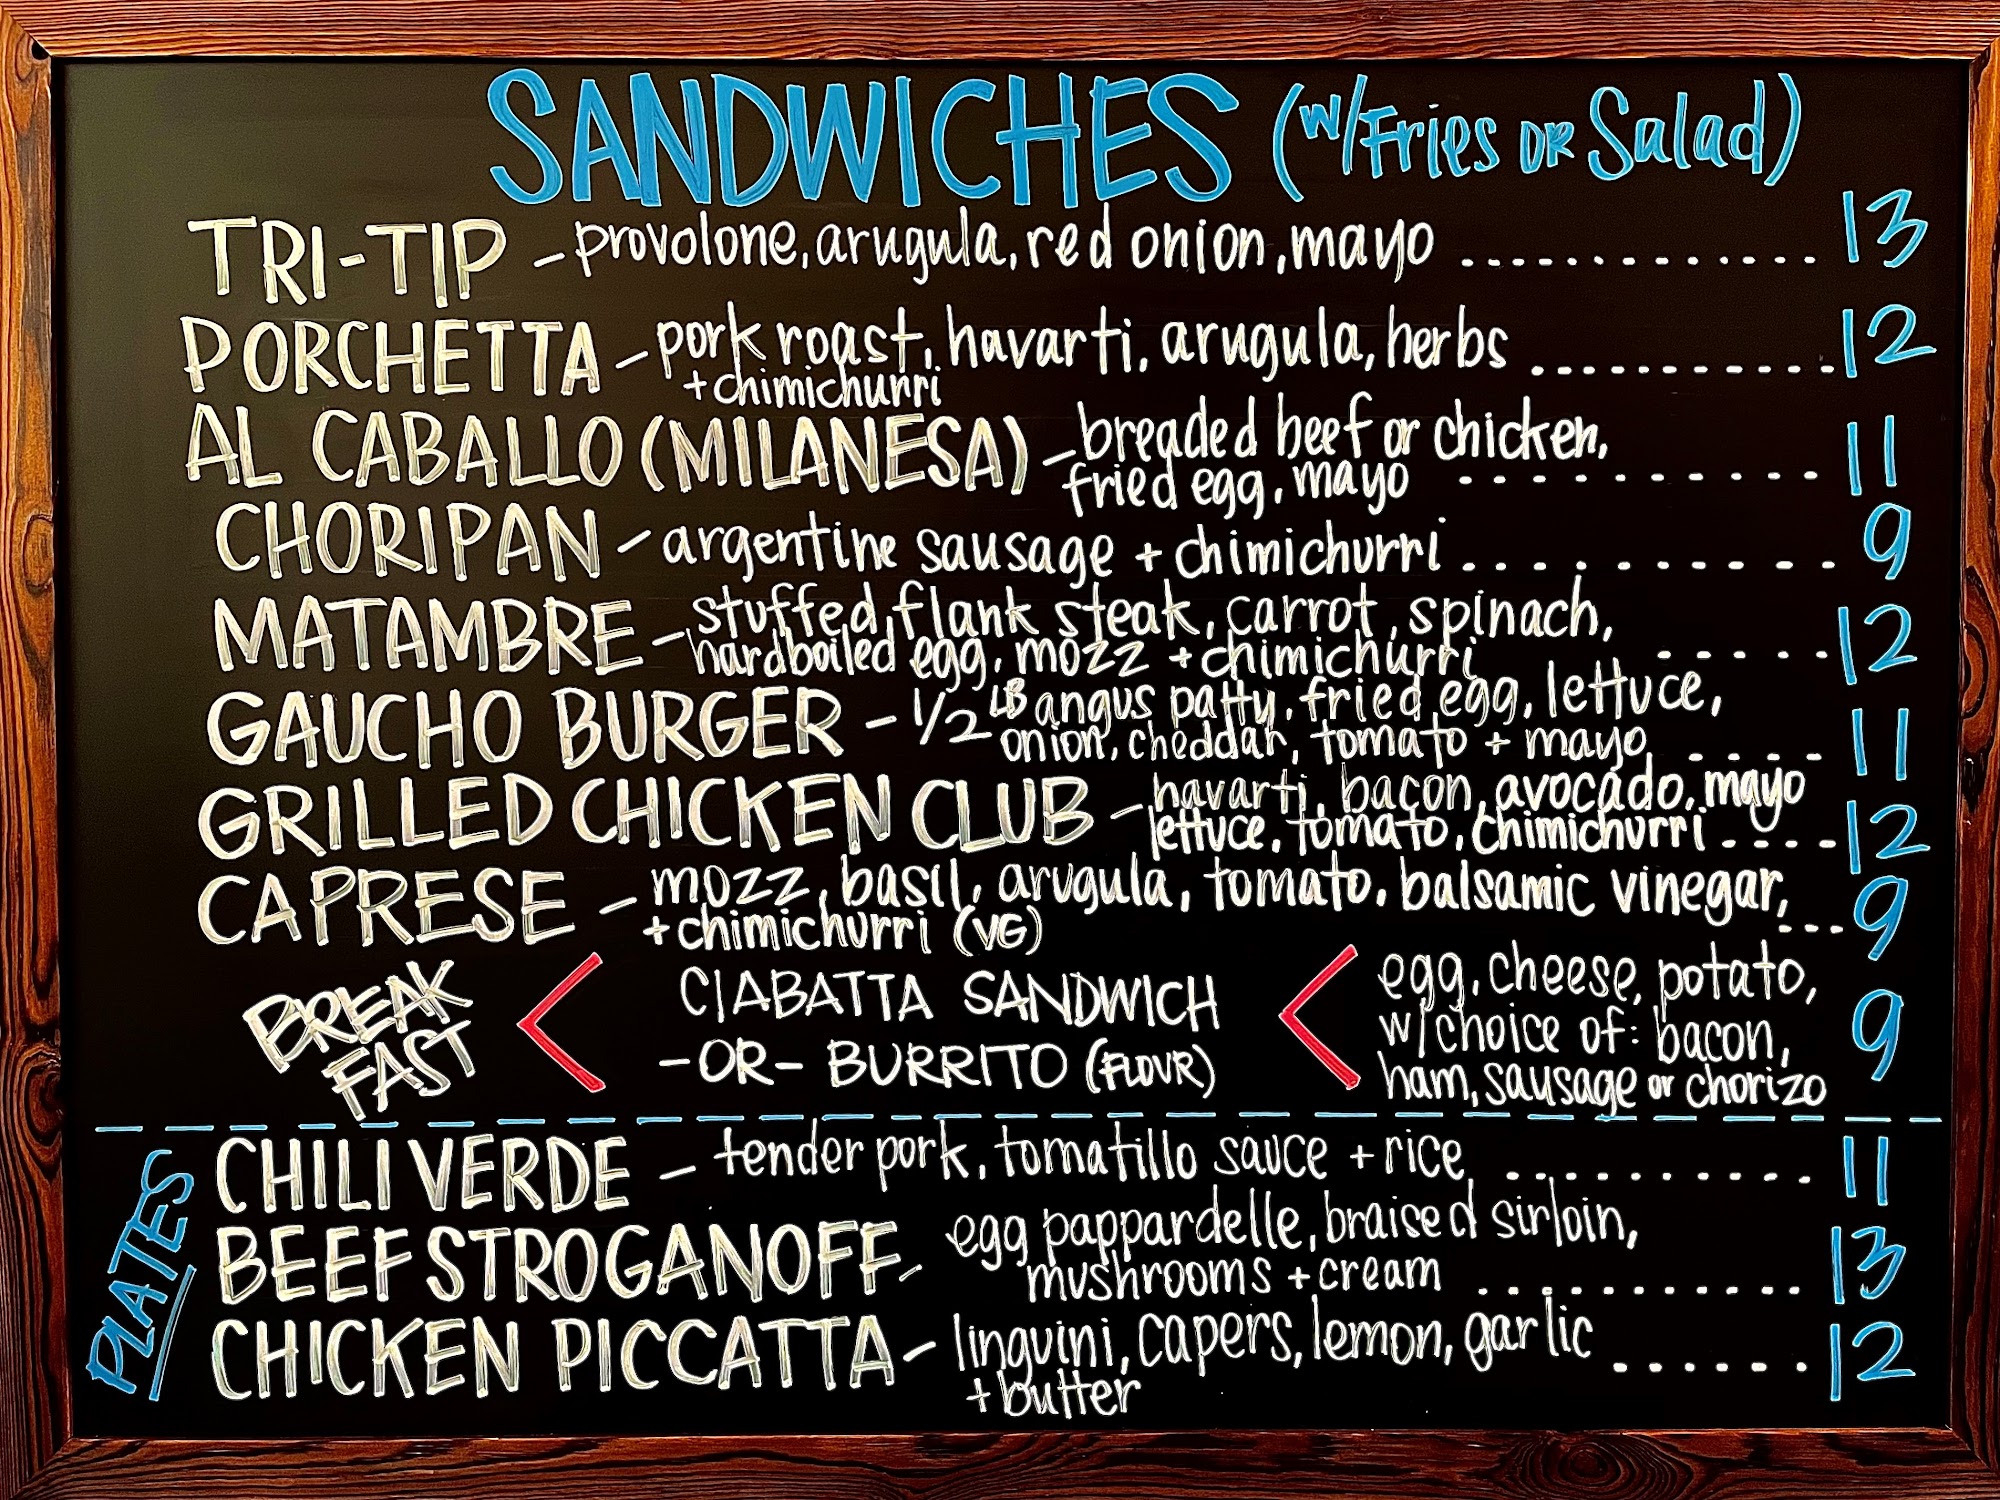 SANDWICHES (w/Fries OR Salad)
TRI-TIP – provolone, arugula, red onion, mayo ............. 13
PORCHETTA – pork roast, havarti, arugula, herbs ............ 12
+ chimichurri
AL CABALLO (MILANESA) – breaded beef or chicken,
fried egg, mayo .......... 11
CHORIPAN – argentine sausage + chimichurri .......... 9
MATAMBRE – stuffed flank steak, carrot, spinach,
hardboiled egg, mozz + chimichurri ...... 12
GAUCHO BURGER – 1/2 LB angus patty, fried egg, lettuce,
onion, cheddar, tomato + mayo ..... 11
GRILLED CHICKEN CLUB – havarti, bacon, avocado, mayo
lettuce, tomato, chimichurri ..... 12
CAPRESE – mozz, basil, arugula, tomato, balsamic vinegar,
+ chimichurri (VG) ... 9
BREAKFAST < CIABATTA SANDWICH
-OR- BURRITO (FLOUR)
< egg, cheese, potato,
w/choice of: bacon,
ham, sausage or chorizo 9
PLATES
CHILI VERDE – tender pork, tomatillo sauce + rice ........... 11
BEEF STROGANOFF – egg pappardelle, braised sirloin,
mushrooms + cream ............ 13
CHICKEN PICCATTA – linguini, capers, lemon, garlic ...... 12
+ butter